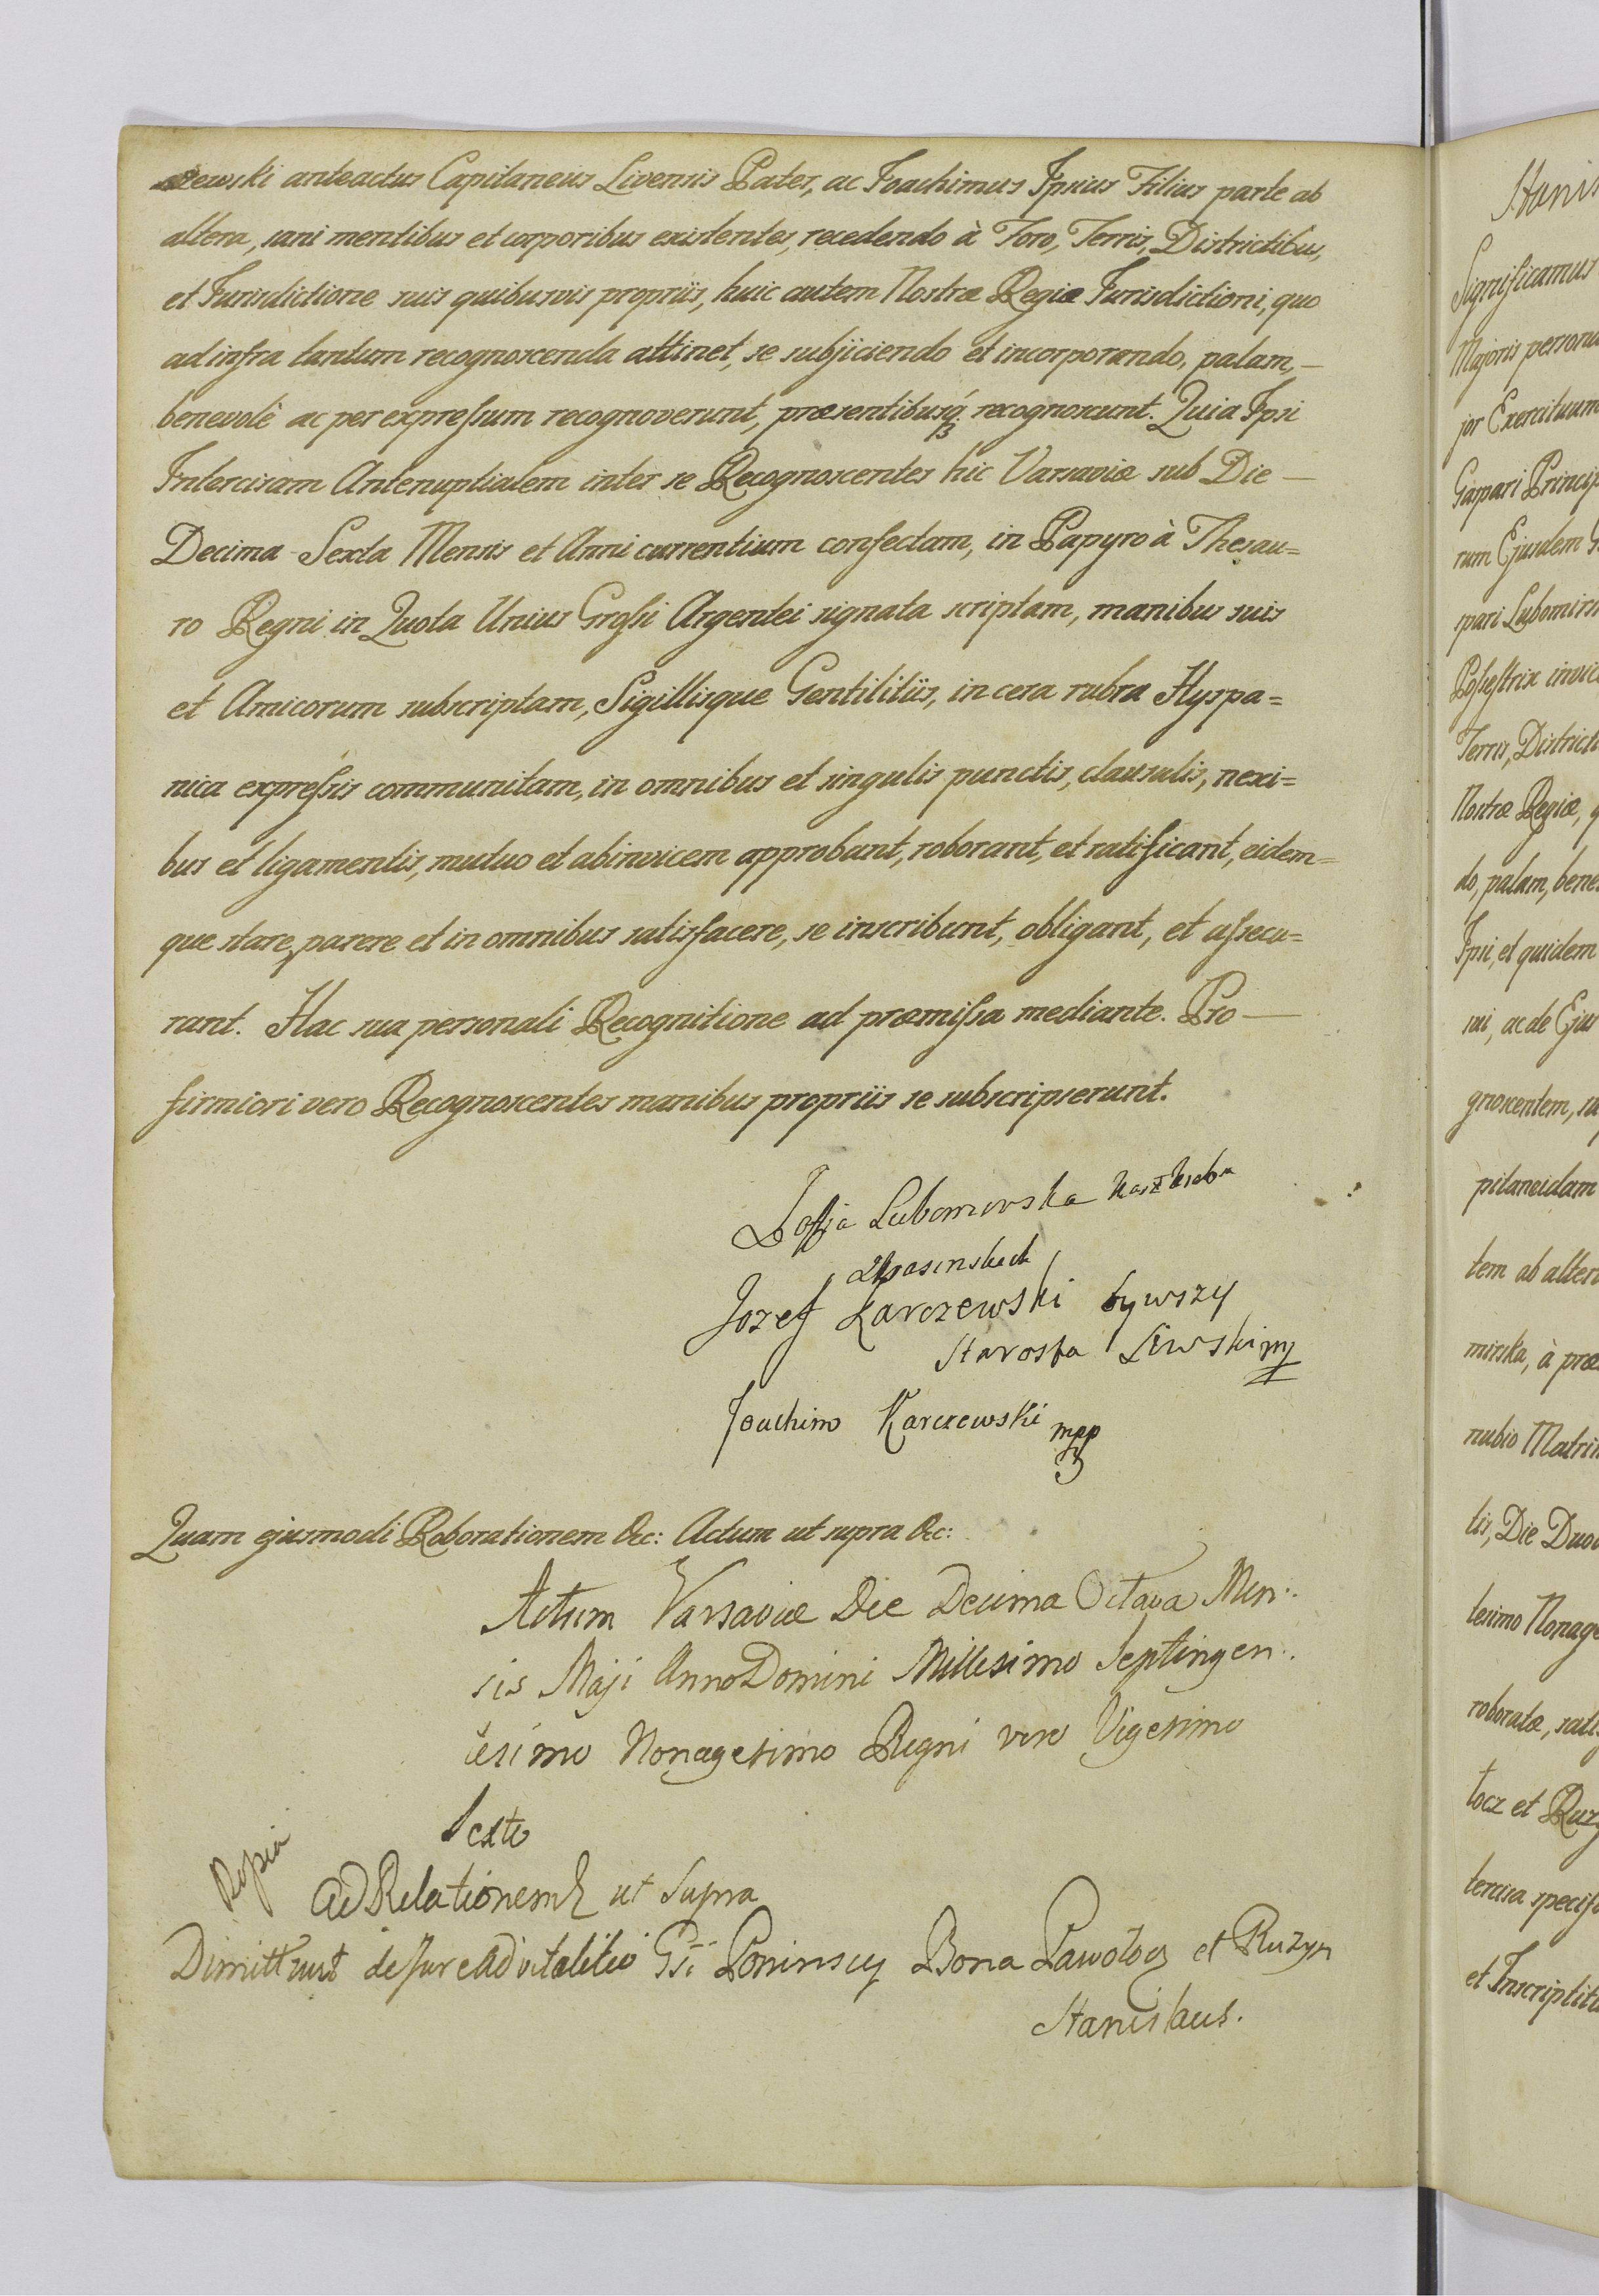 zewski anteactus Capitaneus Livensis Pater, ac Joachimus Ipsius Filius parte ab
altera, sani mentibus et corporibus existentes, recedendo à Foro, Terris, Districtibus,
et Jurisdictione suis quibusvis propriis, huic autem Nostræ Regiæ Jurisdictioni, quo
ad infra tantum recognoscenda attinet, se subjiciendo et incorporando, palam, —
benevolè ac per expreſsum recognoverunt, præsentibusq́ recognoscunt. Quia Ipsi
Intercisam Antenuptialem inter se Recognoscentes hic Varsaviæ sub Die —
Decima Sexta Mensis et Anni currentium confectam, in Papyro à Thesau=
ro Regni in Quota Unius Groſsi Argentei signata scriptam, manibus suis
et Amicorum subscriptam, Sigillisque Gentilitiis, in cera rubra Hyspa=
nica expreſsis communitam, in omnibus et singulis punctis, clausulis, nexi=
bus et ligamentis, mutuo et abinvicem approbant, roborant, et ratificant, eidem=
que stare, parere et in omnibus satisfacere, se inscribunt, obligant, et aſsecu=
rant. Hac sua personali Recognitione ad præmiſsa mediante. Pro —
firmiori vero Recognoscentes manibus propriis se subscripserunt.
Zoffia Lubomirska
Jozef Karczewski bywszy
Starosta Liwski mp
Joachim Karczewski mpp
Quam ejusmodi Roborationem &c: Actum ut supra &c:
Actum Varsaviæ Die Decima Octava Men:
sis Maji Anno Domini Millesimo Septingen:
tesimo Nonagesimo Regni vero Vigesimo
Sexto
Ad Relationem ut Supra
Dimittunt de Jure Advitalitio Gsi Poninscy Bona Pawołocz et Ruzyn
Stanislaus.
Significamus
Majoris persona
jor Exercituum
Gaspari Princip
rum Ejusdem G
spari Lubomirs
Poſseſtrix invic
Terris, District
Nostræ Regiæ, q
do, palam, bene
Ipsi, et quidem
sui, ac de Ejus
gnoscentem, su
pitaneidam
tem ab alter
mirska, à præ
nubio Matri
tis, Die Duo
lesimo Nonage
roboratæ, sati
tocz et Ruz
tercisa specif
et Inscriptit